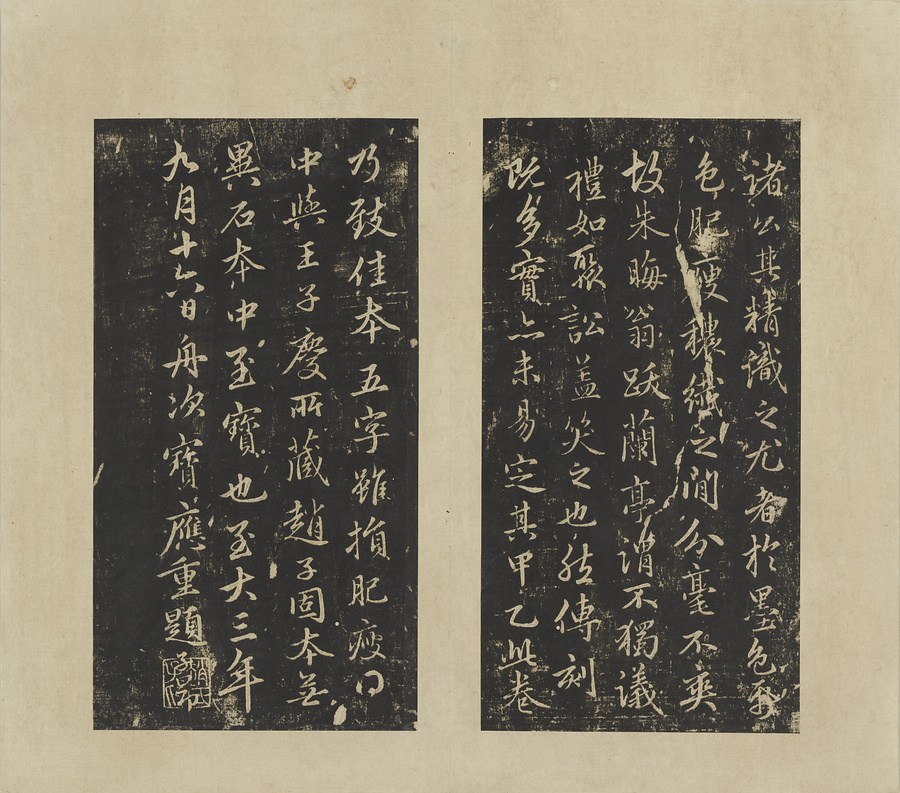 諸公其精識之尤者於墨色紙
色肥瘦穠纖之間分毫不爽
故朱晦翁跋蘭亭謂不獨議
禮如聚訟蓋笑之也然傳刻
既多實亦未易定其甲乙此卷
乃致佳本五字雖損肥瘦得
中與王子慶所藏趙子固本無
異石本中至寶也至大三年
九月十六日舟次寶應重題
趙氏子昂